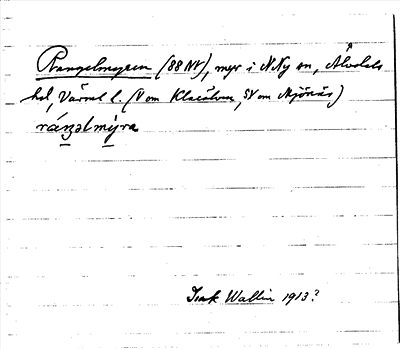 Rangelmyren (88 NV), myr i N. Ny sn, Älvdals
hd, Värml l. (V om Klarälven, SV om Mjönäs)
ráŋəlmy̆ra
Isak Wallin 1913?